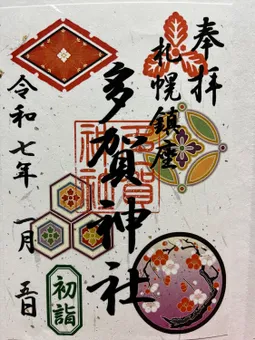 奉拝
札幌鎮座
多賀神社
多賀
神社
令和七年 一月 五日
初詣